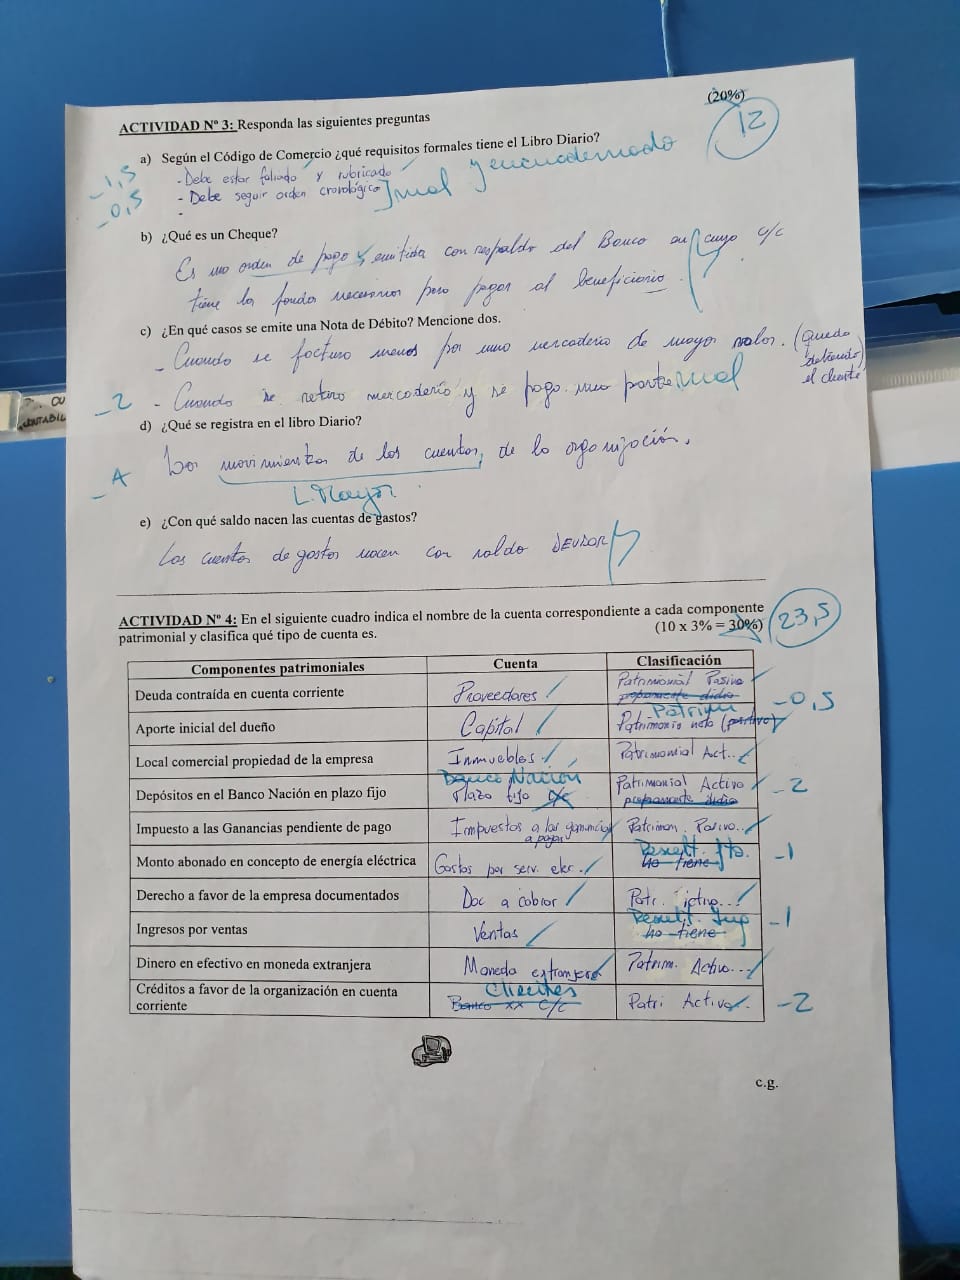 (20%)
12
ACTIVIDAD Nº 3: Responda las siguientes preguntas
a) Según el Código de Comercio ¿qué requisitos formales tiene el Libro Diario?
-1,5
- Debe estar foliado y rubricado
y encuadernado
-0,5
- Debe seguir orden cronológico
mal
-
b) ¿Qué es un Cheque?
Es una orden de pago y emitida con respaldo del Banco en cuyo c/c
tiene los fondos necesarios para pagar al beneficiario.
c) ¿En qué casos se emite una Nota de Débito? Mencione dos.
- Cuando se facturo menos por una mercaderia de mayor valor. (queda
debiendo
el cliente)
-2
- Cuando se retira mercadería y se paga una parte mal
d) ¿Qué se registra en el libro Diario?
Los movimientos de las cuentas, de la organización.
L. Mayor
e) ¿Con qué saldo nacen las cuentas de gastos?
Las cuentas de gastos nacen con saldo DEUDOR
ACTIVIDAD Nº 4: En el siguiente cuadro indica el nombre de la cuenta correspondiente a cada componente
patrimonial y clasifica qué tipo de cuenta es.
(10 x 3% = 30%)
23,5
Componentes patrimoniales Cuenta Clasificación
Deuda contraída en cuenta corriente Proveedores Patrimonial Pasivo
-0,5
Aporte inicial del dueño Capital Patrimonio neto
Local comercial propiedad de la empresa Inmuebles Patrimonial Act..
Banco Nación
Depósitos en el Banco Nación en plazo fijo Plazo fijo Patrimonial Activo
propiamente dicho
-2
Impuesto a las Ganancias pendiente de pago Impuestos a las ganancias a pagar Patrimon. Pasivo..
Result.
Monto abonado en concepto de energía eléctrica Gastos por serv. elec. no tiene
-1
Derecho a favor de la empresa documentados Doc a cobrar Patr.
Result.
Ingresos por ventas Ventas no tiene
-1
Dinero en efectivo en moneda extranjera Moneda extranjera Patrim. Activo...
Clientes
Créditos a favor de la organización en cuenta
corriente Banco xx c/c Patri Activo.
-2
c.g.